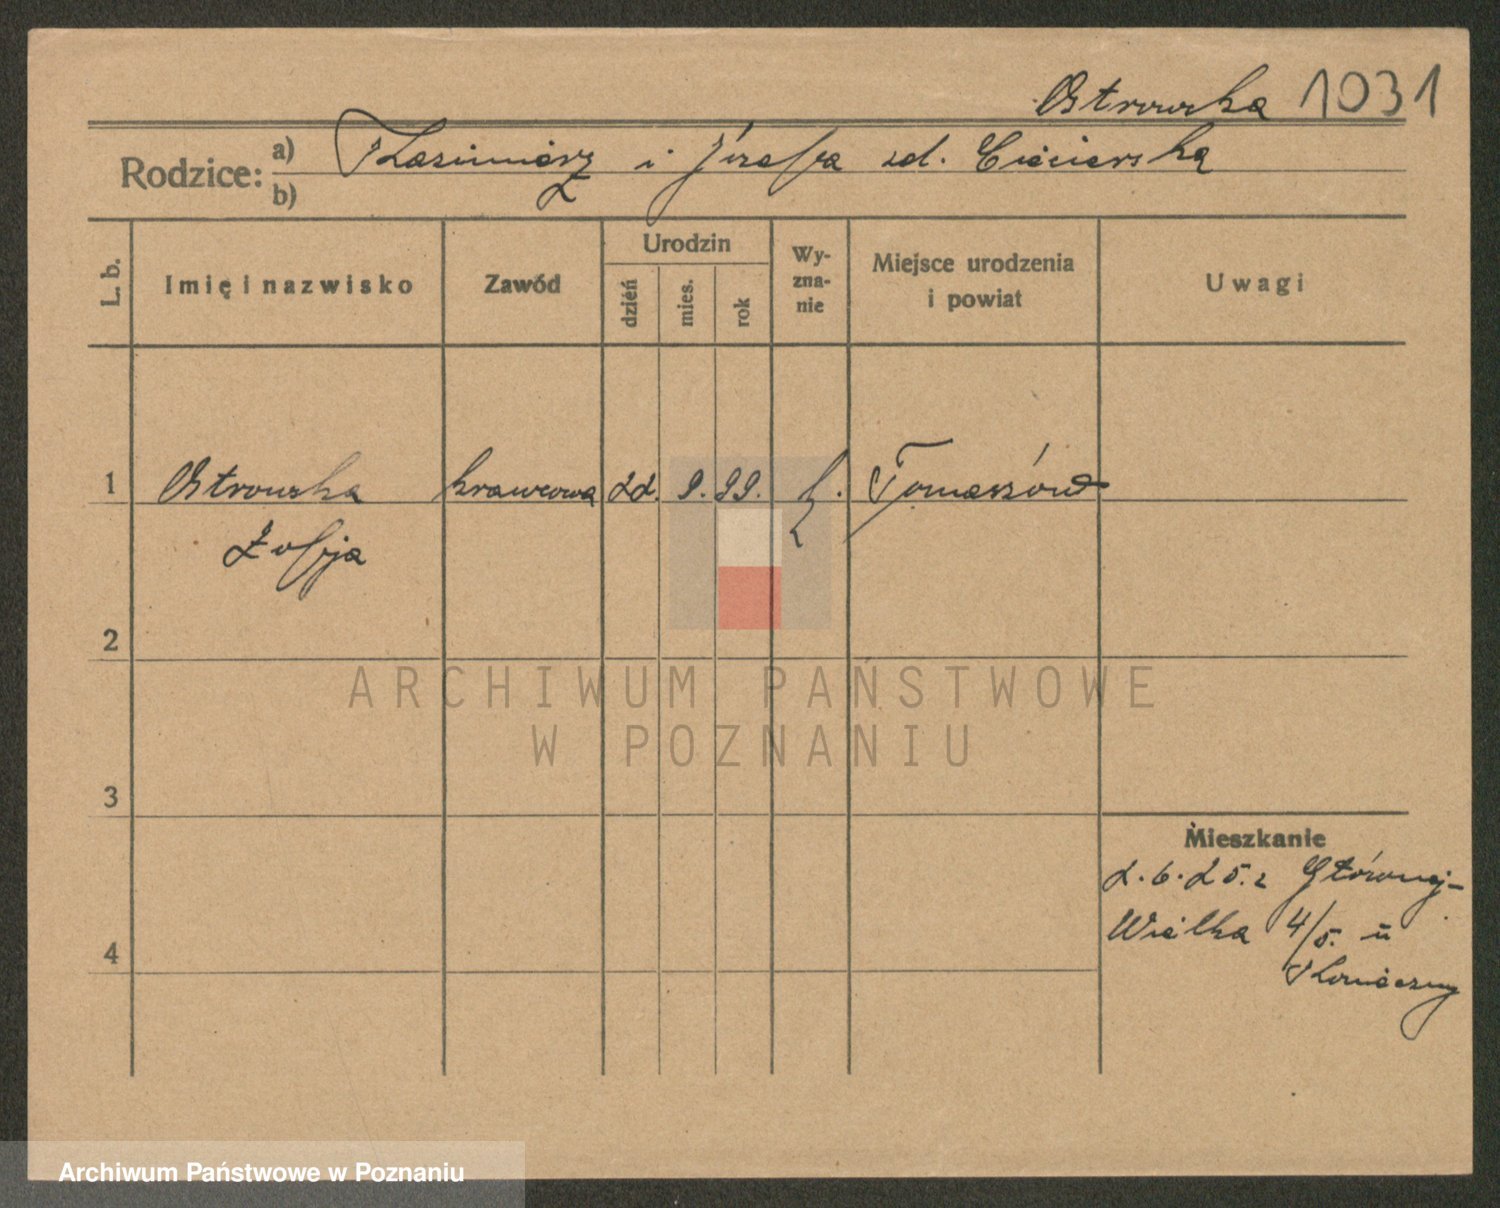 Ostrowska 1031
Rodzice: a) Kazimierz i Józefa zd. Ciecierska
b)
L. b. Imię i nazwisko Zawód Urodzin dzień mies. rok Wyznanie Miejsce urodzenia i powiat Uwagi
1 Ostrowska krawcowa 22. 9. 99. Tomaszów
Zofja
2
3
4
Mieszkanie
2.6.25. z Głównej-
Wielka 4/5. u
ARCHIWUM PAŃSTWOWE
W POZNANIU
Archiwum Państwowe w Poznaniu